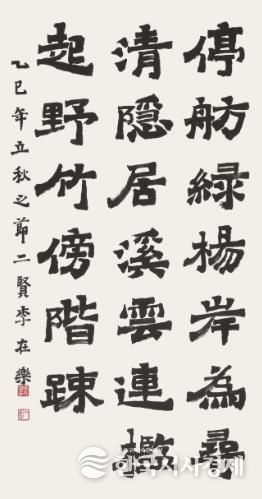 停舫綠楊岸為尋
清隱居溪雲連檻
起野竹傍階疎
乙巳年立秋之節二賢李在樂
한국시사경제